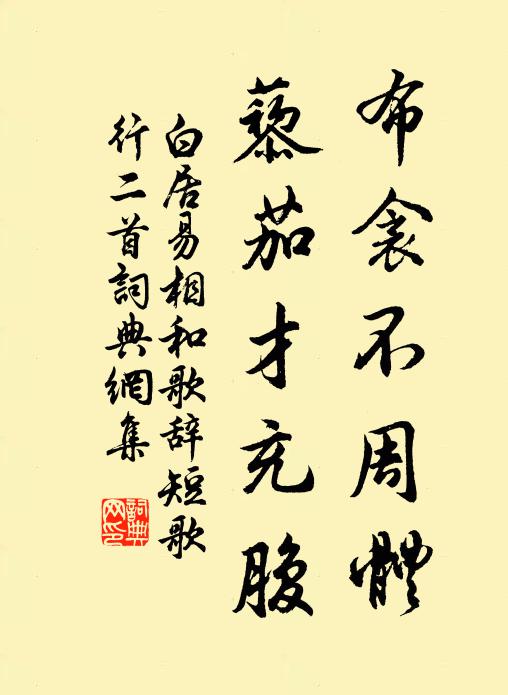 布衾不周體
藜茹才充腹
白居易相和歌辞短歌
行二首詞典網集
詞典網印